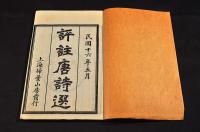 民國十六年五月
評註唐詩選
上海掃葉山房發行